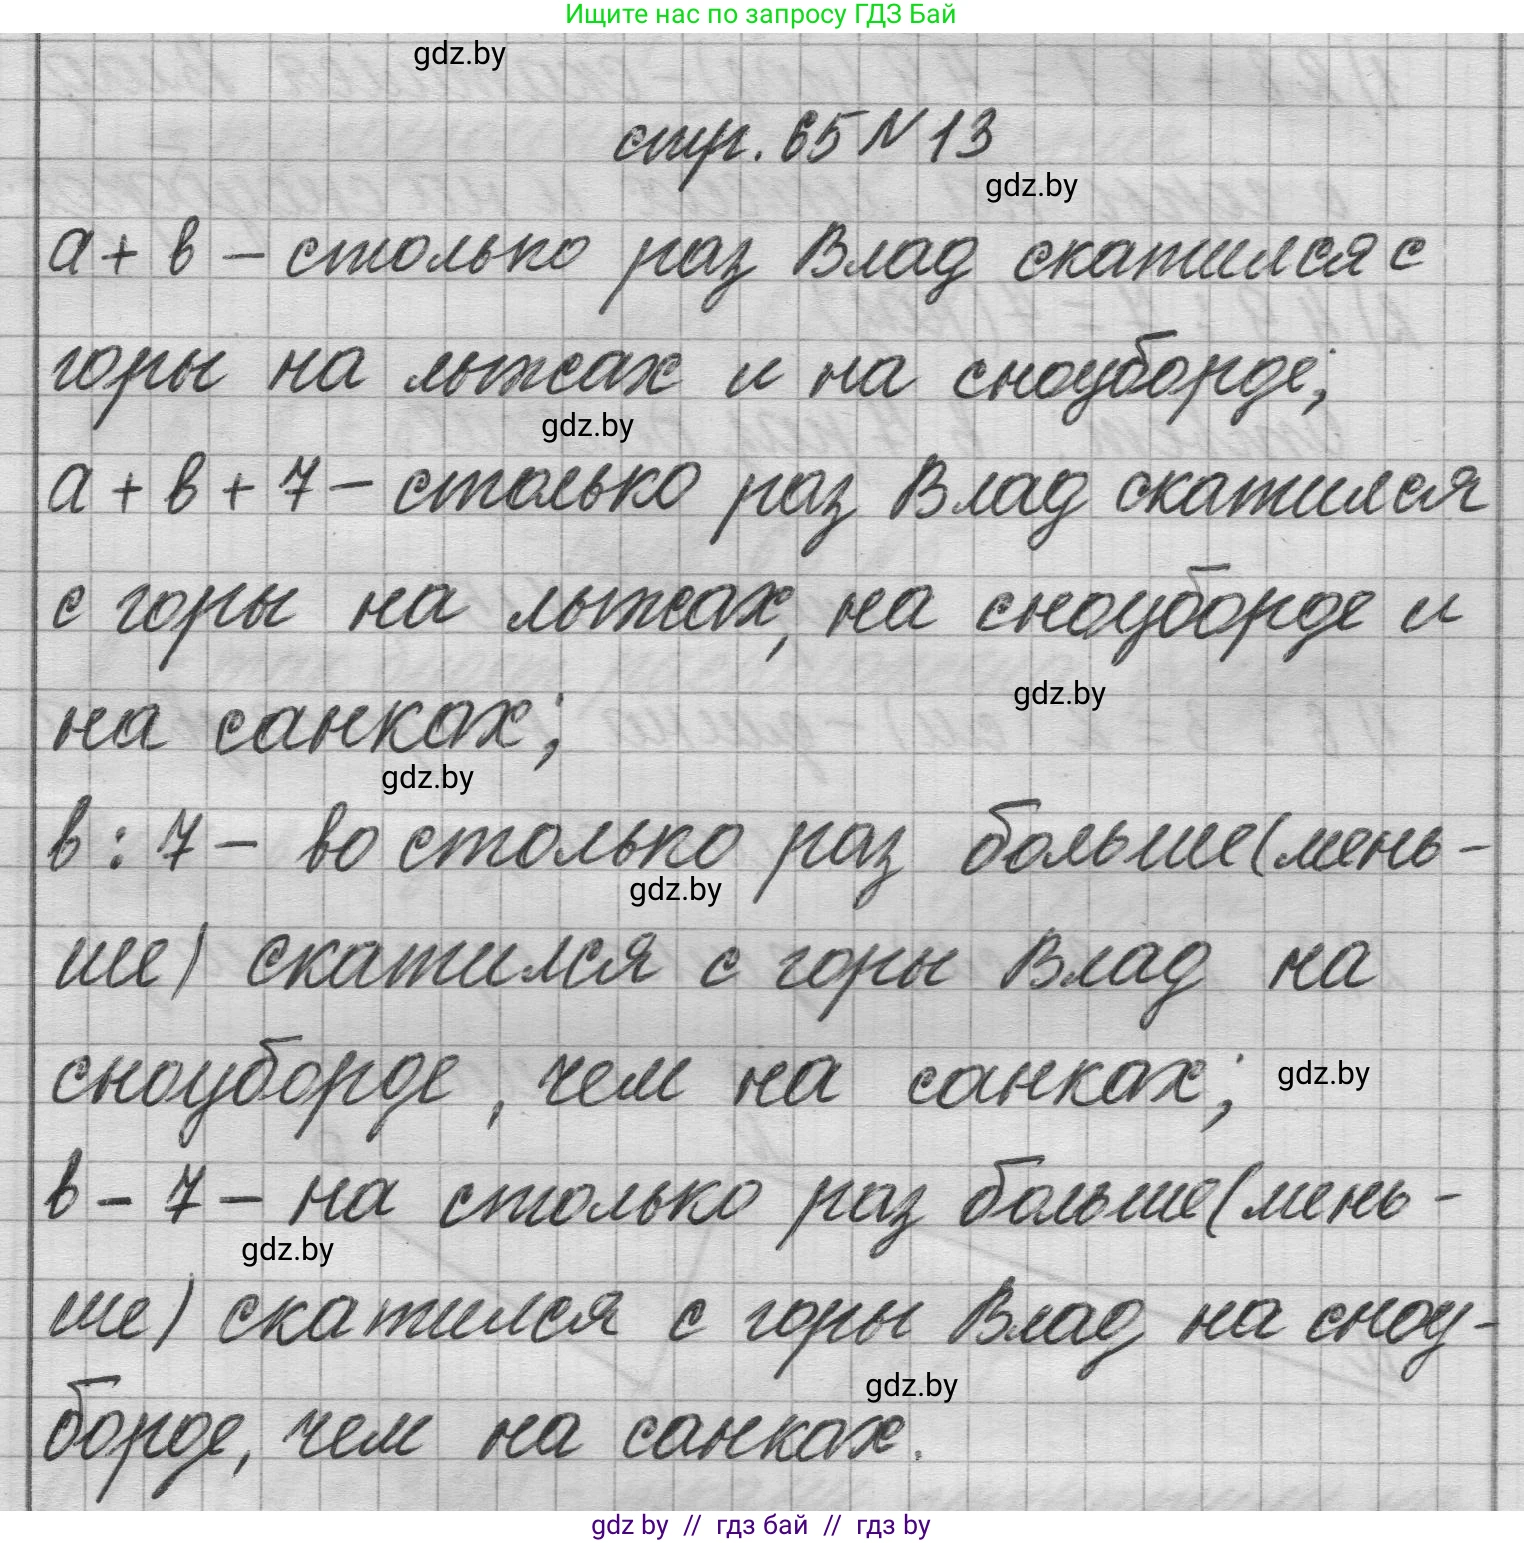 Ищите нас по запросу ГДЗ Бай
gdz.by
стр. 65 N 13
gdz.by
а + в – столько раз Влад скатился с
горы на лыжах и на сноуборде;
gdz.by
а + в + 7 – столько раз Влад скатился
с горы на лыжах, на сноуборде и
gdz.by
на санках;
gdz.by
в : 7 – во столько раз больше (мень-
gdz.by
ше) скатился с горы Влад на
сноуборде, чем на санках;
gdz.by
в – 7 – на столько раз больше (мень-
gdz.by
ше) скатился с горы Влад на сноу-
gdz.by
борде, чем на санках.
gdz by // гдз бай // гдз by